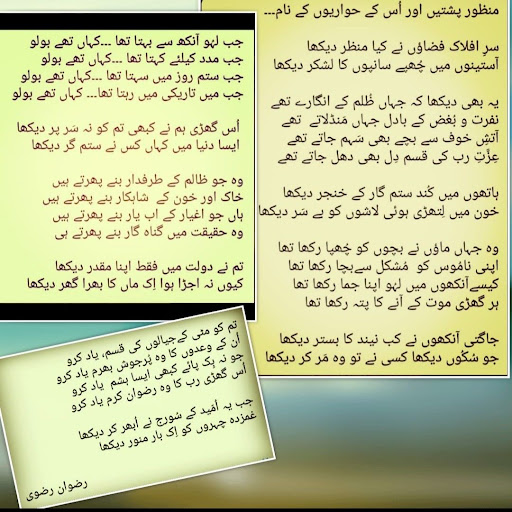 منظور پشتیں اور اُس کے حواریوں کے نام۔۔۔
سرِ افلاک فضاؤں نے کیا منظر دیکھا
آستینوں میں چُھپے سانپوں کا لشکر دیکھا
یہ بھی دیکھا کہ جہاں ظُلم کے انگارے تھے
نفرت و بُغض کے بادل جہاں مَنڈلاتے تھے
آتشِ خوف سے بچے بھی سَہم جاتے تھے
عِزّتِ رب کی قسم دِل بھی دھل جاتے تھے
ہاتھوں میں کُند ستم گار کے خنجر دیکھا
خون میں لِتھڑی ہوئی لاشوں کو بے سَر دیکھا
وہ جہاں ماؤں نے بچوں کو چُھپا رکھا تھا
اپنی نامُوس کو مُشکل سےبچا رکھا تھا
کیسےآنکھوں میں لہو اپنا جما رکھا تھا
ہر گھڑی موت کے آنے کا پتہ رکھا تھا
جاگتی آنکھوں نے کب نیند کا بستر دیکھا
جو سُکُوں دیکھا کسی نے تو وہ مَر کر دیکھا
جب لہُو آنکھ سے بہتا تھا ۔۔۔کہاں تھے بولو
جب مدد کیلئے کہتا تھا ۔۔۔کہاں تھے بولو
جب ستم روز میں سہتا تھا ۔۔۔کہاں تھے بولو
جب میں تاریکی میں رہتا تھا۔۔۔ کہاں تھے بولو
اُس گھڑی ہم نے کبھی تم کو نہ سَر پر دیکھا
ایسا دنیا میں کہاں کس نے ستم گر دیکھا
وہ جو ظالم کے طرفدار بنے پھرتے ہیں
خاک اور خون کے شاہکار بنے پھرتے ہیں
ہاں جو اغیار کے اب یار بنے پھرتے ہیں
وہ حقیقت میں گناہ گار بنے پھرتے ہی
تم نے دولت میں فقط اپنا مقدر دیکھا
کیوں نہ اجڑا ہوا اِک ماں کا بھرا گھر دیکھا
تم کو مٹی کےجیالوں کی قسم، یاد کرو
اُن کے وعدوں کا وہ پُرجوش بھرم یاد کرو
جو نہ بِک پائے کبھی ایسا بشم یاد کرو
اُس گھڑی رب کا وہ رضوان کرم یاد کرو
جب یہ اُمّید کے سُورج نے اُبھر کر دیکھا
غمزدہ چہروں کو اِک بار منور دیکھا
رضوان رضوی